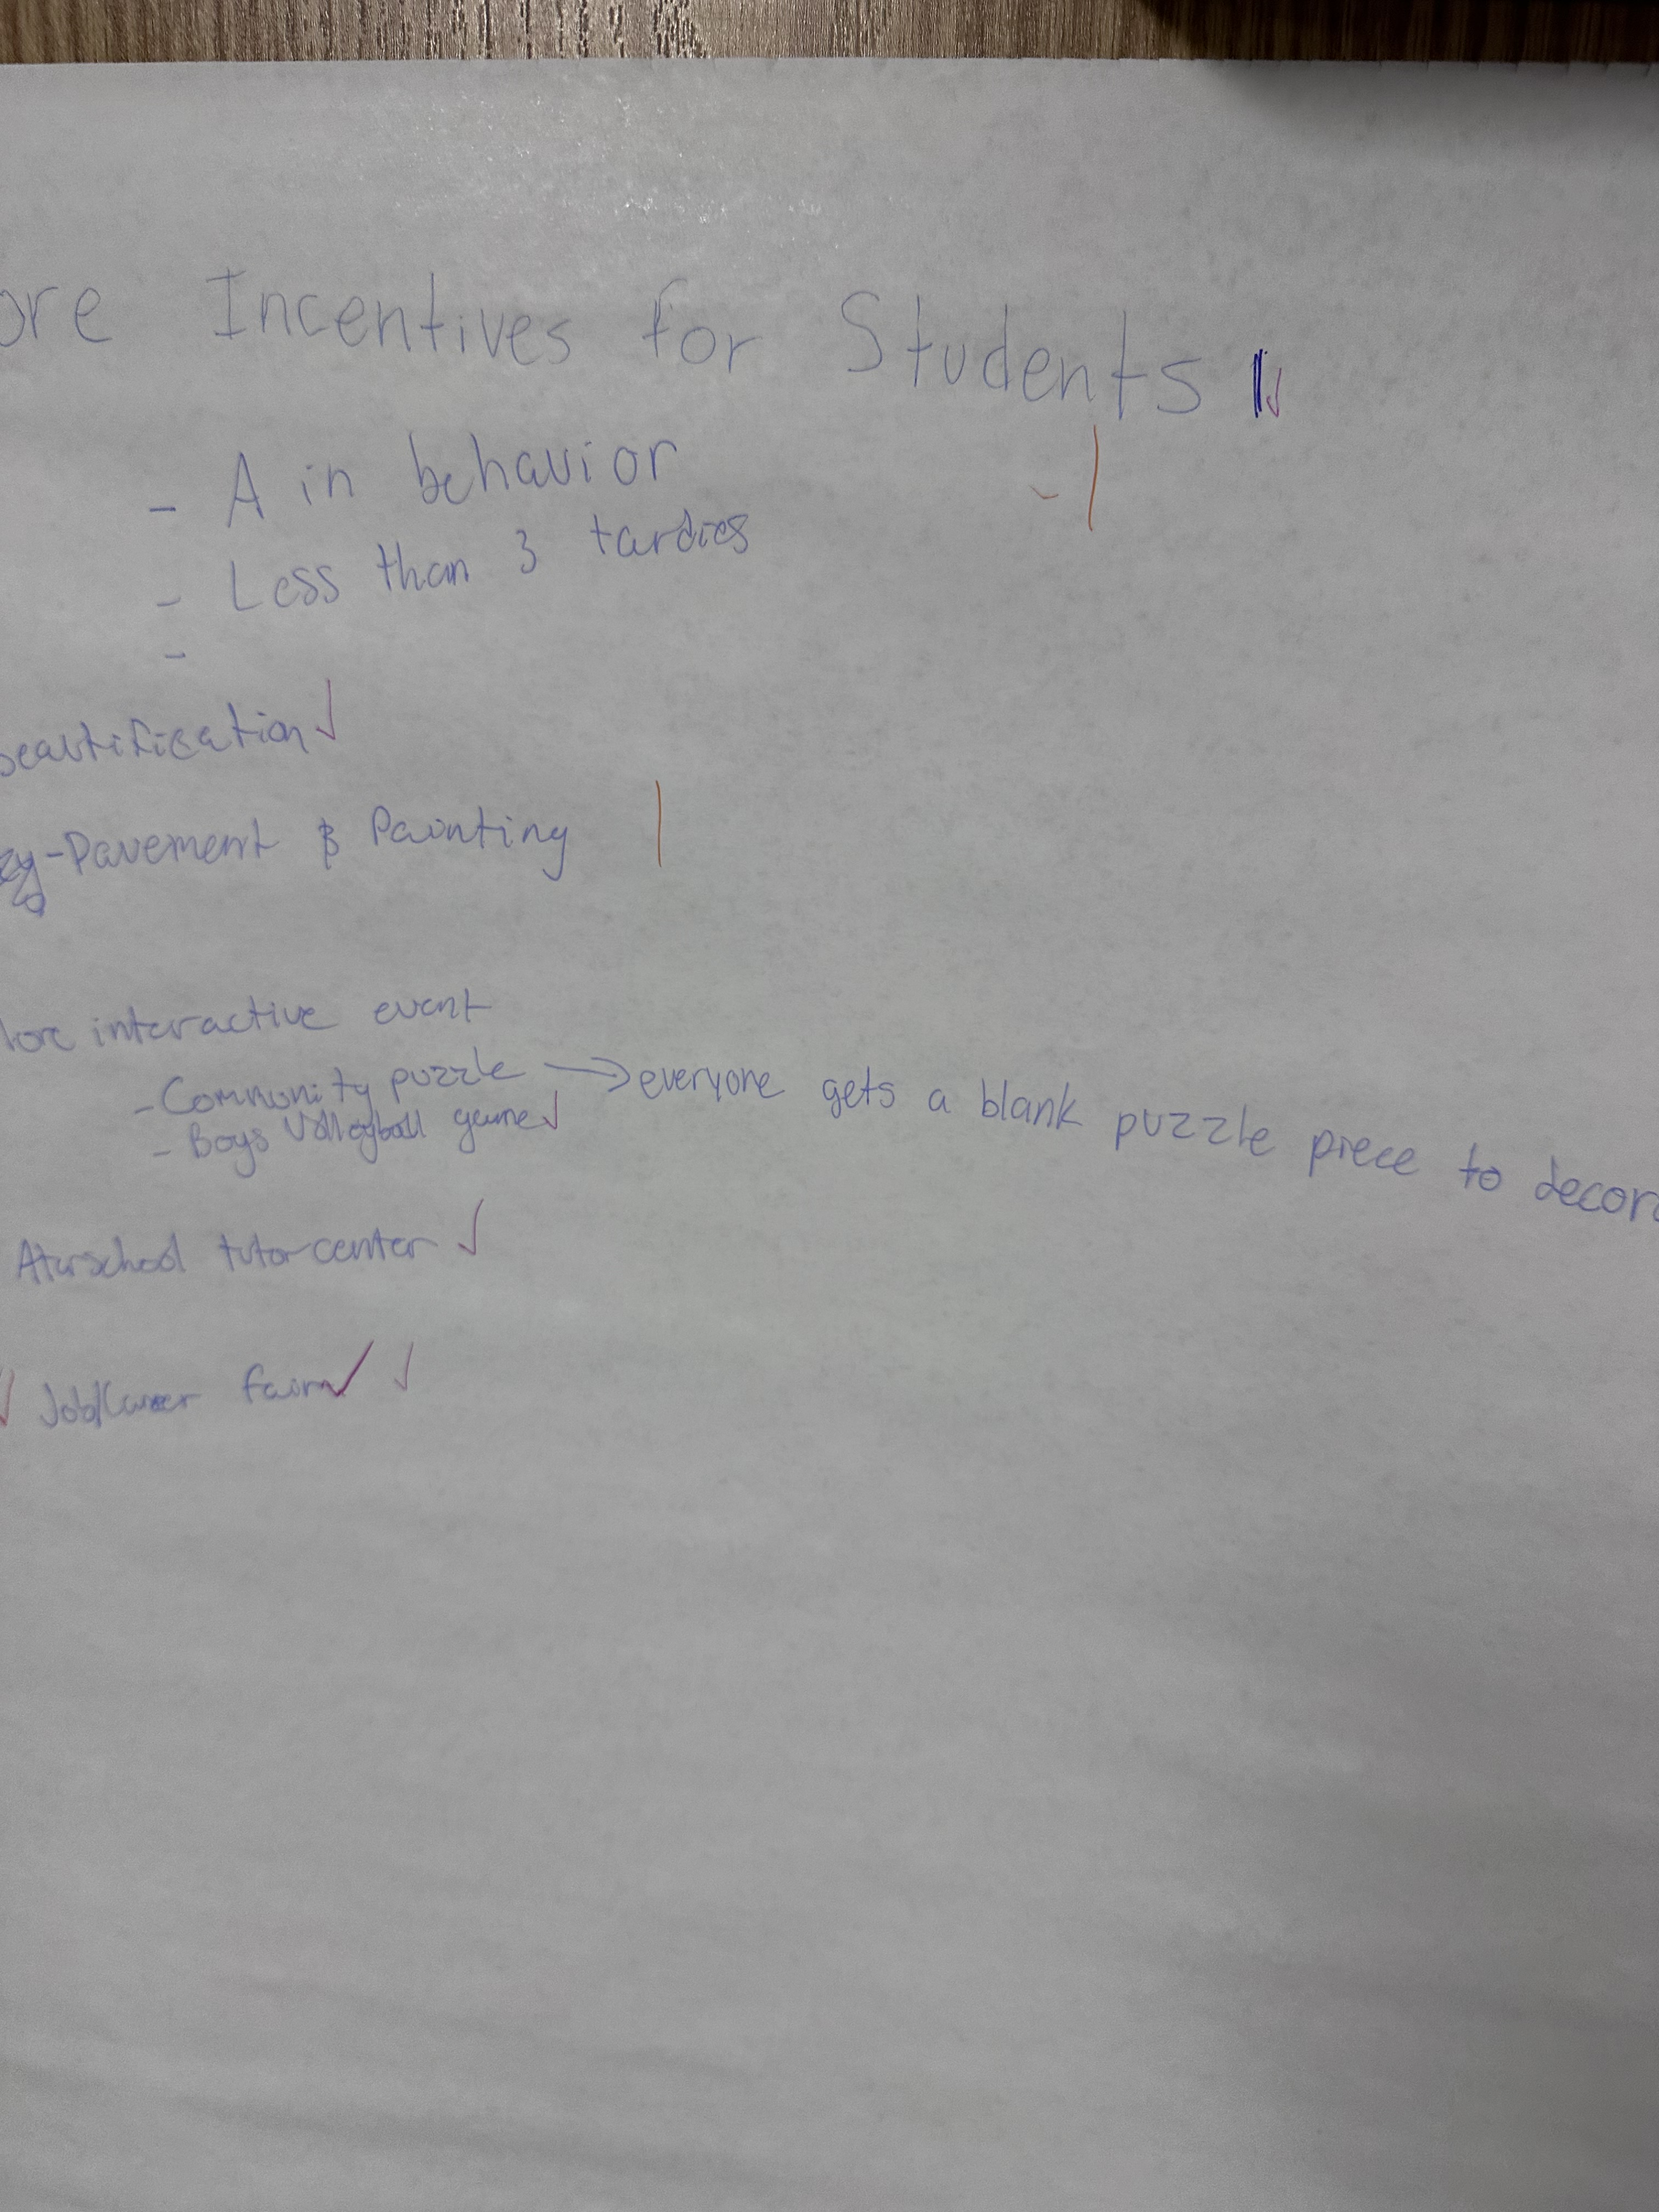 ore Incentives for Students
- A in behavior
- Less than 3 tardies
-
beautification ✓
-Pavement & Painting
More interactive event
- Community puzzle → everyone gets a blank puzzle piece to decor
- Boys Volleyball game ✓
Aterschool tutor center ✓
Job/Career fair ✓ ✓